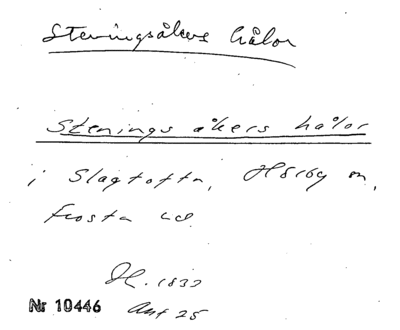 Steningsåkers hålor
Stenings åkers hålor
i Slagtofta, Hörby sn,
Frosta hd
H. 1833
Nr 10446 Ant 25